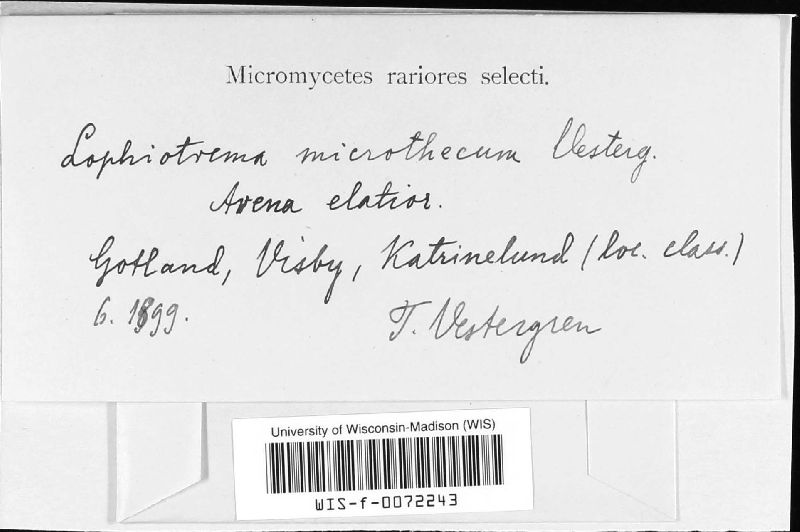 Micromycetes rariores selecti.
Lophiotrema microthecum Vesterg.
Avena elatior.
Gotland, Visby, Katrinelund (loc. class.)
6. 1899.
T. Vestergren
University of Wisconsin-Madison (WIS)
WIS-f-0072243